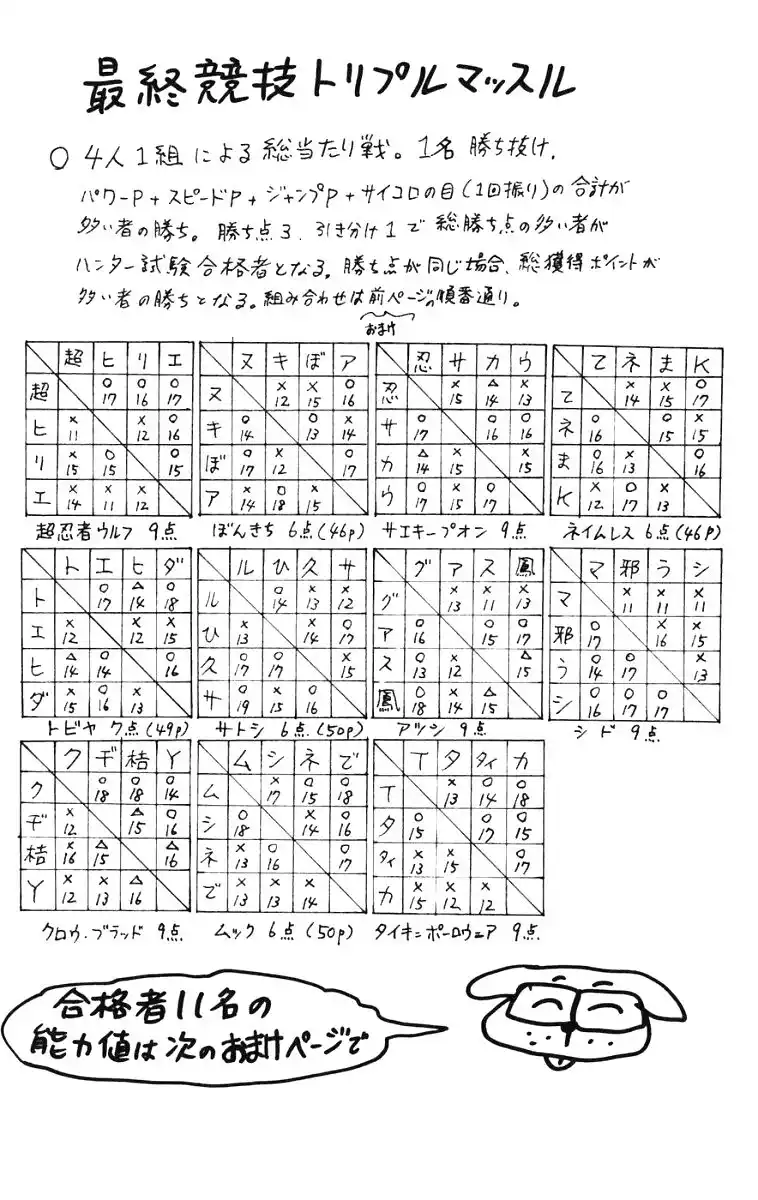 最終競技トリプルマッスル
○ 4人1組による総当たり戦。1名勝ち抜け.
パワーP+スピードP+ジャンプP+サイコロの目(1回振り)の合計が
多い者の勝ち。勝ち点3、引き分け1で総勝ち点の多い者が
ハンター試験合格者となる。勝ち点が同じ場合、総獲得ポイントが
多い者の勝ちとなる。組み合わせは前ページの順番通り。
おまけ
超 ヒ リ エ
超 ○17 ○16 ○17
ヒ ×11 ×12 ○16
リ ×15 ○15 ○15
エ ×14 ×11 ×12
超忍者ウルフ 9点
ヌ キ ぼ ア
ヌ ×12 ×15 ○16
キ ○14 ○13 ×14
ぼ ○17 ×12 ○17
ア ×14 ○18 ×15
ぼんきち 6点(46p)
忍 サ カ ウ
忍 ×15 △14 ×13
サ ○17 ○16 ○16
カ △14 ×15 ×15
ウ ○17 ×15 ○17
サエキープオン 9点
て ネ ま K
て ×14 ×15 ○17
ネ ○16 ○15 ×15
ま ○16 ×13 ○16
K ×12 ○17 ×13
ネイムレス 6点(46p)
ト エ ヒ ダ
ト ○17 △14 ○18
エ ×12 ×12 ×15
ヒ △14 ○14 ○16
ダ ×15 ○16 ×13
トビヤ 7点(49p)
ル ひ 久 サ
ル ○14 ×13 ×12
ひ ×13 ×14 ○17
久 ○17 ○17 ×15
サ ○19 ×15 ○16
サトシ 6点(50p)
グ ア ス 鳳
グ ×13 ×11 ×13
ア ○16 ○15 ○17
ス ○13 ×12 △15
鳳 ○18 ×14 △15
アツシ 9点
マ 邪 う シ
マ ×11 ×11 ×11
邪 ○17 ×16 ×15
う ○14 ○17 ×13
シ ○16 ○17 ○17
シド 9点
ク ヂ 桔 Y
ク ○18 ○18 ○14
ヂ ×12 △15 ○16
桔 ×16 △15 △16
Y ×12 ×13 △16
クロウ・ブラッド 9点
ム シ ネ で
ム ×17 ○15 ○18
シ ○18 ×14 ○16
ネ ×13 ○16 ○17
で ×13 ×13 ×14
ムック 6点(50p)
T タ タイ カ
T ×13 ○14 ○18
タ ○15 ○17 ○15
タイ ×13 ×15 ○17
カ ×15 ×12 ×12
タイキ=ポーロウェア 9点
合格者11名の
能力値は次のおまけページで